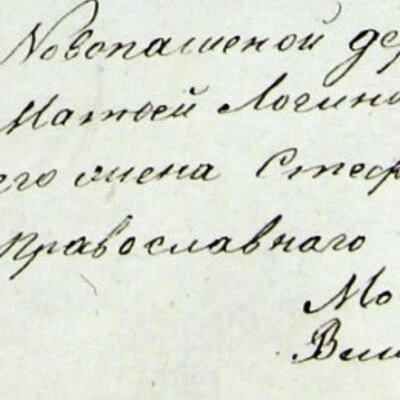 Новопашеной де
Матвей Логино
его жена Стеф
Православнаго
Мо
Вме